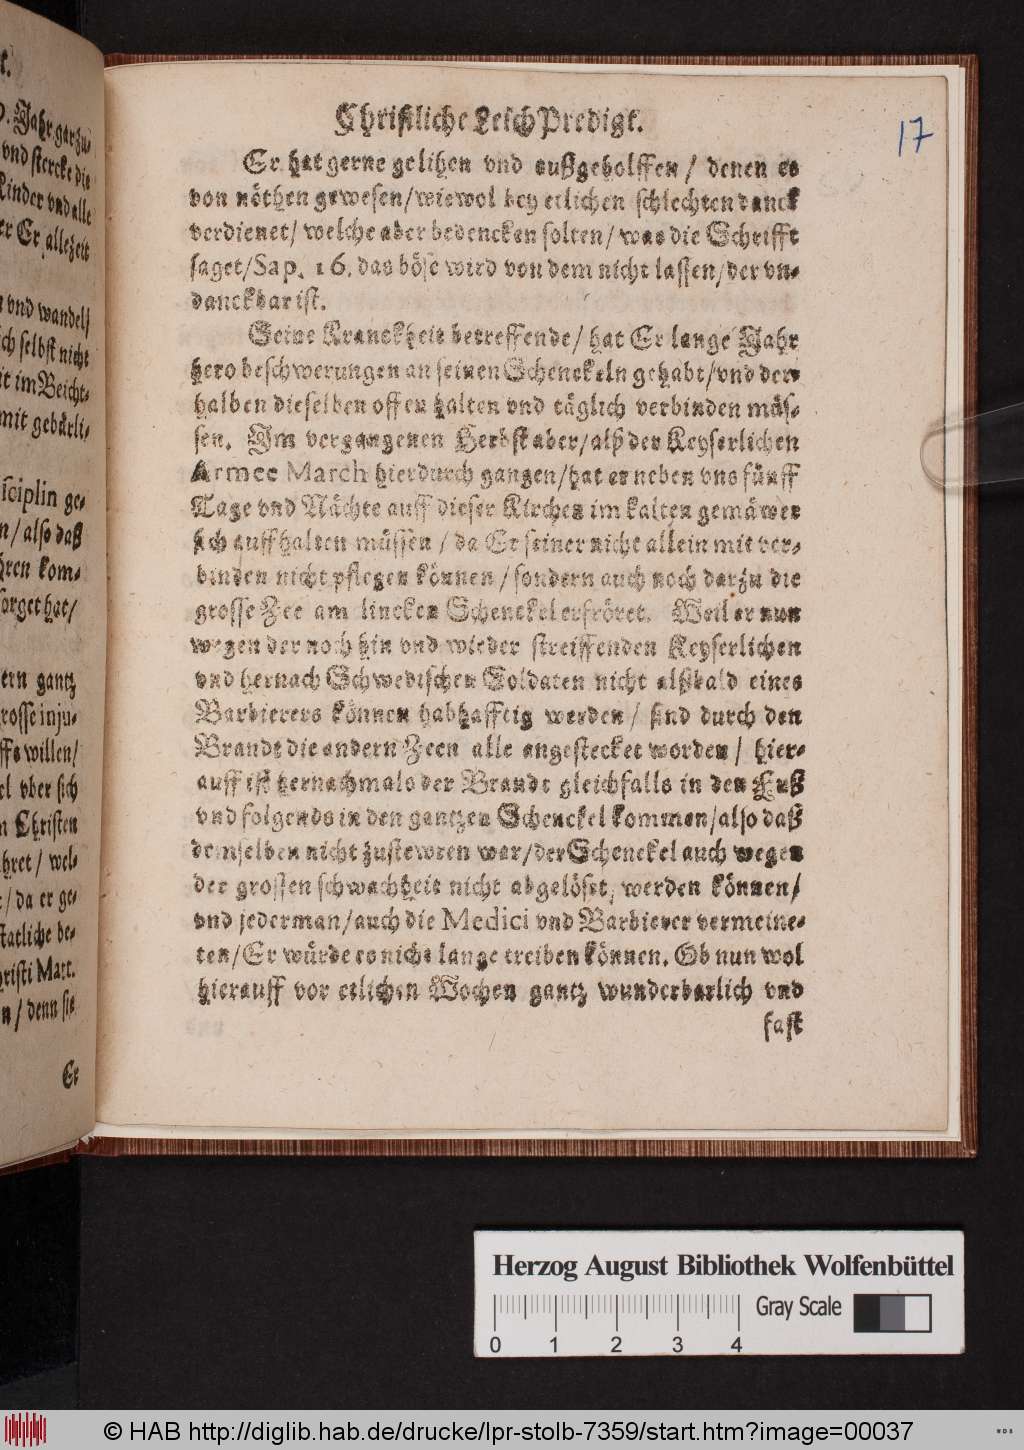 t.
Jahr gar zu-
vnd stercke die
Kinder vnd alle
er Er allezeit
n vnd wandel/
ch selbst nicht
it im Beicht-
mit gebürli-
sciplin ge-
n/ also daß
hren kom-
sorget hat/
ern gantz
rosse inju-
ffs willen/
el vber sich
n Christen
hret/ wel-
/ da er ge-
statliche be-
hristi Mart.
n/ denn sie
Er
Christliche LeichPredigt.
17
Er hat gerne gelihen vnd außgeholffen/ denen es
von nöthen gewesen/ wiewol bey etlichen schlechten danck
verdienet/ welche aber bedencken solten/ was die Schrifft
saget/ Sap. 16. das böse wird von dem nicht lassen/ der vn-
danckbar ist.
Seine Kranckheit betreffende/ hat Er lange Jahr
hero beschwerungen an seinen Schenckeln gehabt/ vnd der-
halben dieselben offen halten vnd täglich verbinden müs-
sen. Im vergangenen Herbst aber/ alß der Keyserlichen
Armee March hierdurch gangen/ hat er neben vns fünff
Tage vnd Nächte auff dieser Kirchen im kalten gemäwer
sich auffhalten müssen/ da Er seiner nicht allein mit ver-
binden nicht pflegen können/ sondern auch noch darzu die
grosse Zee am lincken Schenckel erfröret. Weil er nun
wegen der noch hin vnd wieder streiffenden Keyserlichen
vnd hernach Schwedischen Soldaten nicht alßbald eines
Barbierers können habhafftig werden/ sind durch den
Brandt die andern Zeen alle angestecket worden/ hier-
auff ist hernachmals der Brandt gleichfalls in den Fuß
vnd folgends in den gantzen Schenckel kommen/ also daß
demselben nicht zustewren war/ der Schenckel auch wegen
der grossen schwachheit nicht abgelöset, werden können/
vnd jederman/ auch die Medici vnd Barbierer vermeine-
ten/ Er würde es nicht lange treiben können. Ob nun wol
hierauff vor etlichen Wochen gantz wunderbarlich vnd
fast
Herzog August Bibliothek Wolfenbüttel
Gray Scale
0 1 2 3 4
© HAB http://diglib.hab.de/drucke/lpr-stolb-7359/start.htm?image=00037